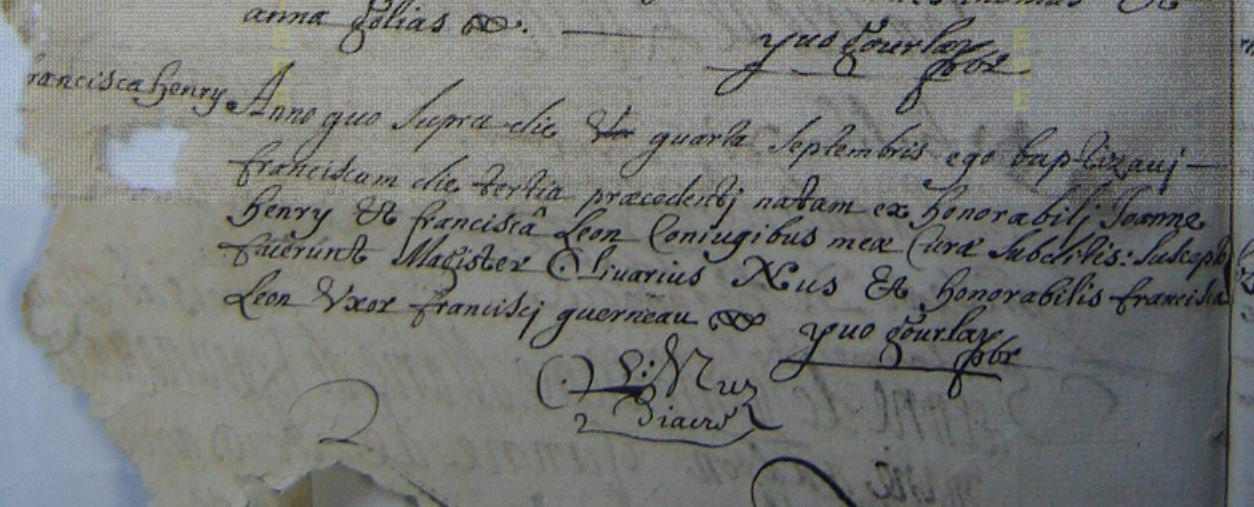 anna golias
yuo gourlay pbr
francisca henry
Anno quo supra die quarta septembris ego baptizauj
franciscam die tertia præcedentj natam ex honorabilj Joanne
henry Et franciscâ Leon Coniugibus meæ Curæ subditis: suscept
fuerunt Magister Oliuarius Nus Et honorabilis francisca
Leon Vxor franciscj guerneau yuo gourlay pbr
O: Nuz
Diacre